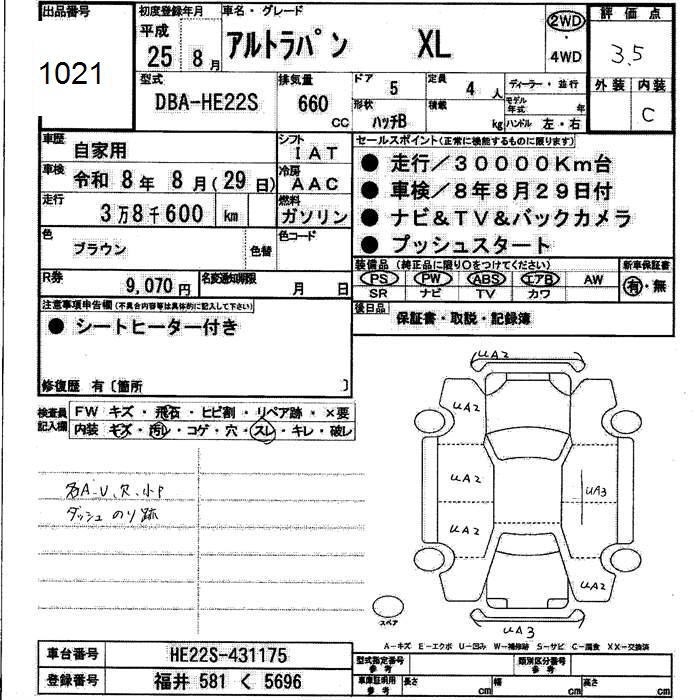 出品番号
1021
初度登録年月
平成
25 8月
車名・グレード
アルトラパン XL
2WD
・
4WD
評価点
3.5
外装 内装
C
型式
DBA-HE22S
排気量
660
CC
ドア
5
定員
4 人
形状
ハッチB
積載
kg
ディーラー・並行
モデル年式
年
ハンドル 左・右
車歴
自家用
シフト
IAT
車検
令和 8年 8月(29日)
冷房
AAC
走行
3万8千600 km
燃料
ガソリン
色
ブラウン
色替
色コード
R券
9,070円
名変通知期限
月 日
セールスポイント(正常に機能するものに限ります)
● 走行/30000Km台
● 車検/8年8月29日付
● ナビ&TV&バックカメラ
● プッシュスタート
装備品 (純正品に限り○をつけてください)
PS PW ABS エアB AW
SR ナビ TV カワ
新車保証書
有・無
後日品
保証書・取説・記録簿
注意事項申告欄(不具合内容等は具体的に記入して下さい)
● シートヒーター付き
修復歴 有〔箇所 〕
検査員
記入欄
FW キズ・飛石・ヒビ割・リペア跡・×要
内装 キズ・汚レ・コゲ・穴・スレ・キレ・破レ
各A・U、穴、小P
ダッシュ のり跡
UA2
UA2
UA2
UA3
UA2
UA2
UA3
スペア
A-キズ E-エクボ U-凹み W-補修跡 S-サビ C-腐食 XX-交換済
車台番号
HE22S-431175
登録番号
福井 581 く 5696
型式指定番号
参考
類別区分番号
参考
車庫証明用
参考
長さ
cm
幅
cm
高さ
cm